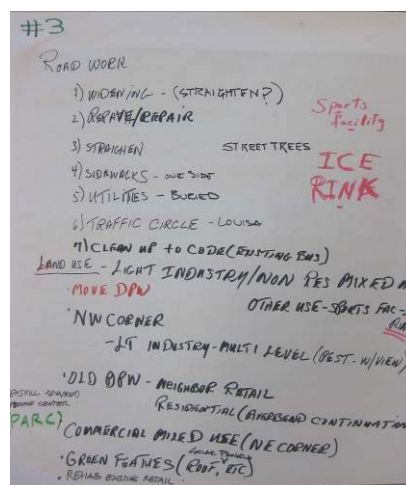 #3
ROAD WORK
1) WIDENING - (STRAIGHTEN?)
Sports facility
2) REPAVE/REPAIR
3) STRAIGHEN
STREET TREES
ICE RINK
4) SIDEWALKS - ONE SIDE
5) UTILITIES - BURIED
6) TRAFFIC CIRCLE - LOUISA
7) CLEAN UP TO CODE (EXISTING BUS)
LAND USE - LIGHT INDUSTRY/NON RES MIXED
· MOVE DPW
OTHER USE - SPORTS FAC -
· NW CORNER
- LT INDUSTRY - MULTI LEVEL (REST. W/VIEW)
· OLD DPW - NEIGHBOR RETAIL
RESIDENTIAL (AVERBEND CONTINUATION
CENTER
PARC)
· COMMERCIAL MIXED USE (NE CORNER)
· GREEN FEATUES (ROOF, ETC)
· REHAB EXISTING RETAIL